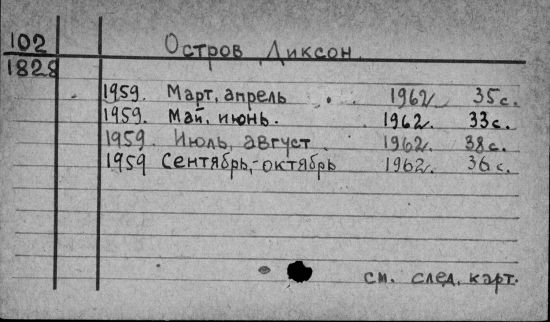 102 Остров Диксон.
1828
1959. Март, апрель . 1962г. 35с.
1959. Май, июнь. 1962г. 33с.
1959. Июль, август. 1962г. 38с.
1959 Сентябрь,-октябрь 1962г. 36с.
см. след. карт.